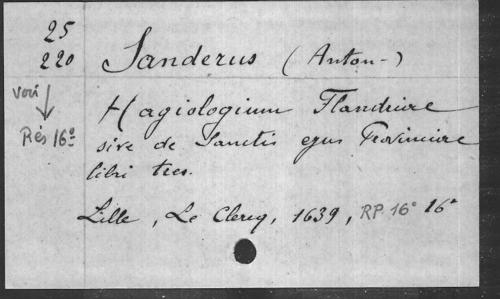 25
220
Sanderus (Anton-)
voir
Rés 16°
Hagiologium Flandriae
sive de Sanctis ejus Provinciae
libri tres.
Lille, Le Clercq, 1639, RP. 16° 16°